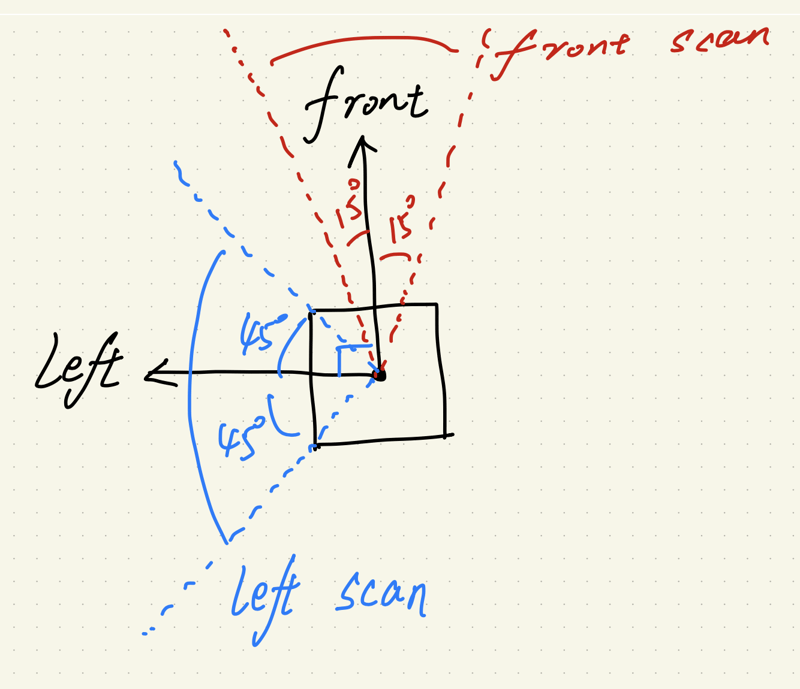 front scan
front
15°
15°
45°
Left
45°
Left scan